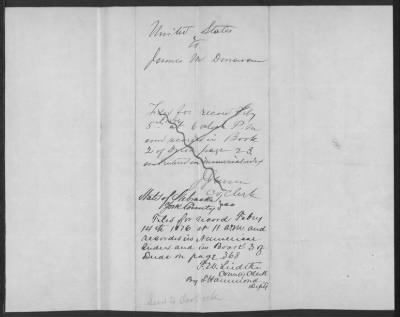 United States
to
James M Donavan
Filed for record Feby
5th at 6 oclock P.M
and recorded in Book
2 of page 23
and entered in numerical index
Co Clerk
State of Nebraska
York County } ss
Filed for record Feby
14th 1876 at 11 a.m and
recorded in Numerical
Index and in Book 3 of
Deeds on page 368
County Clerk
By S Hammond
Dept